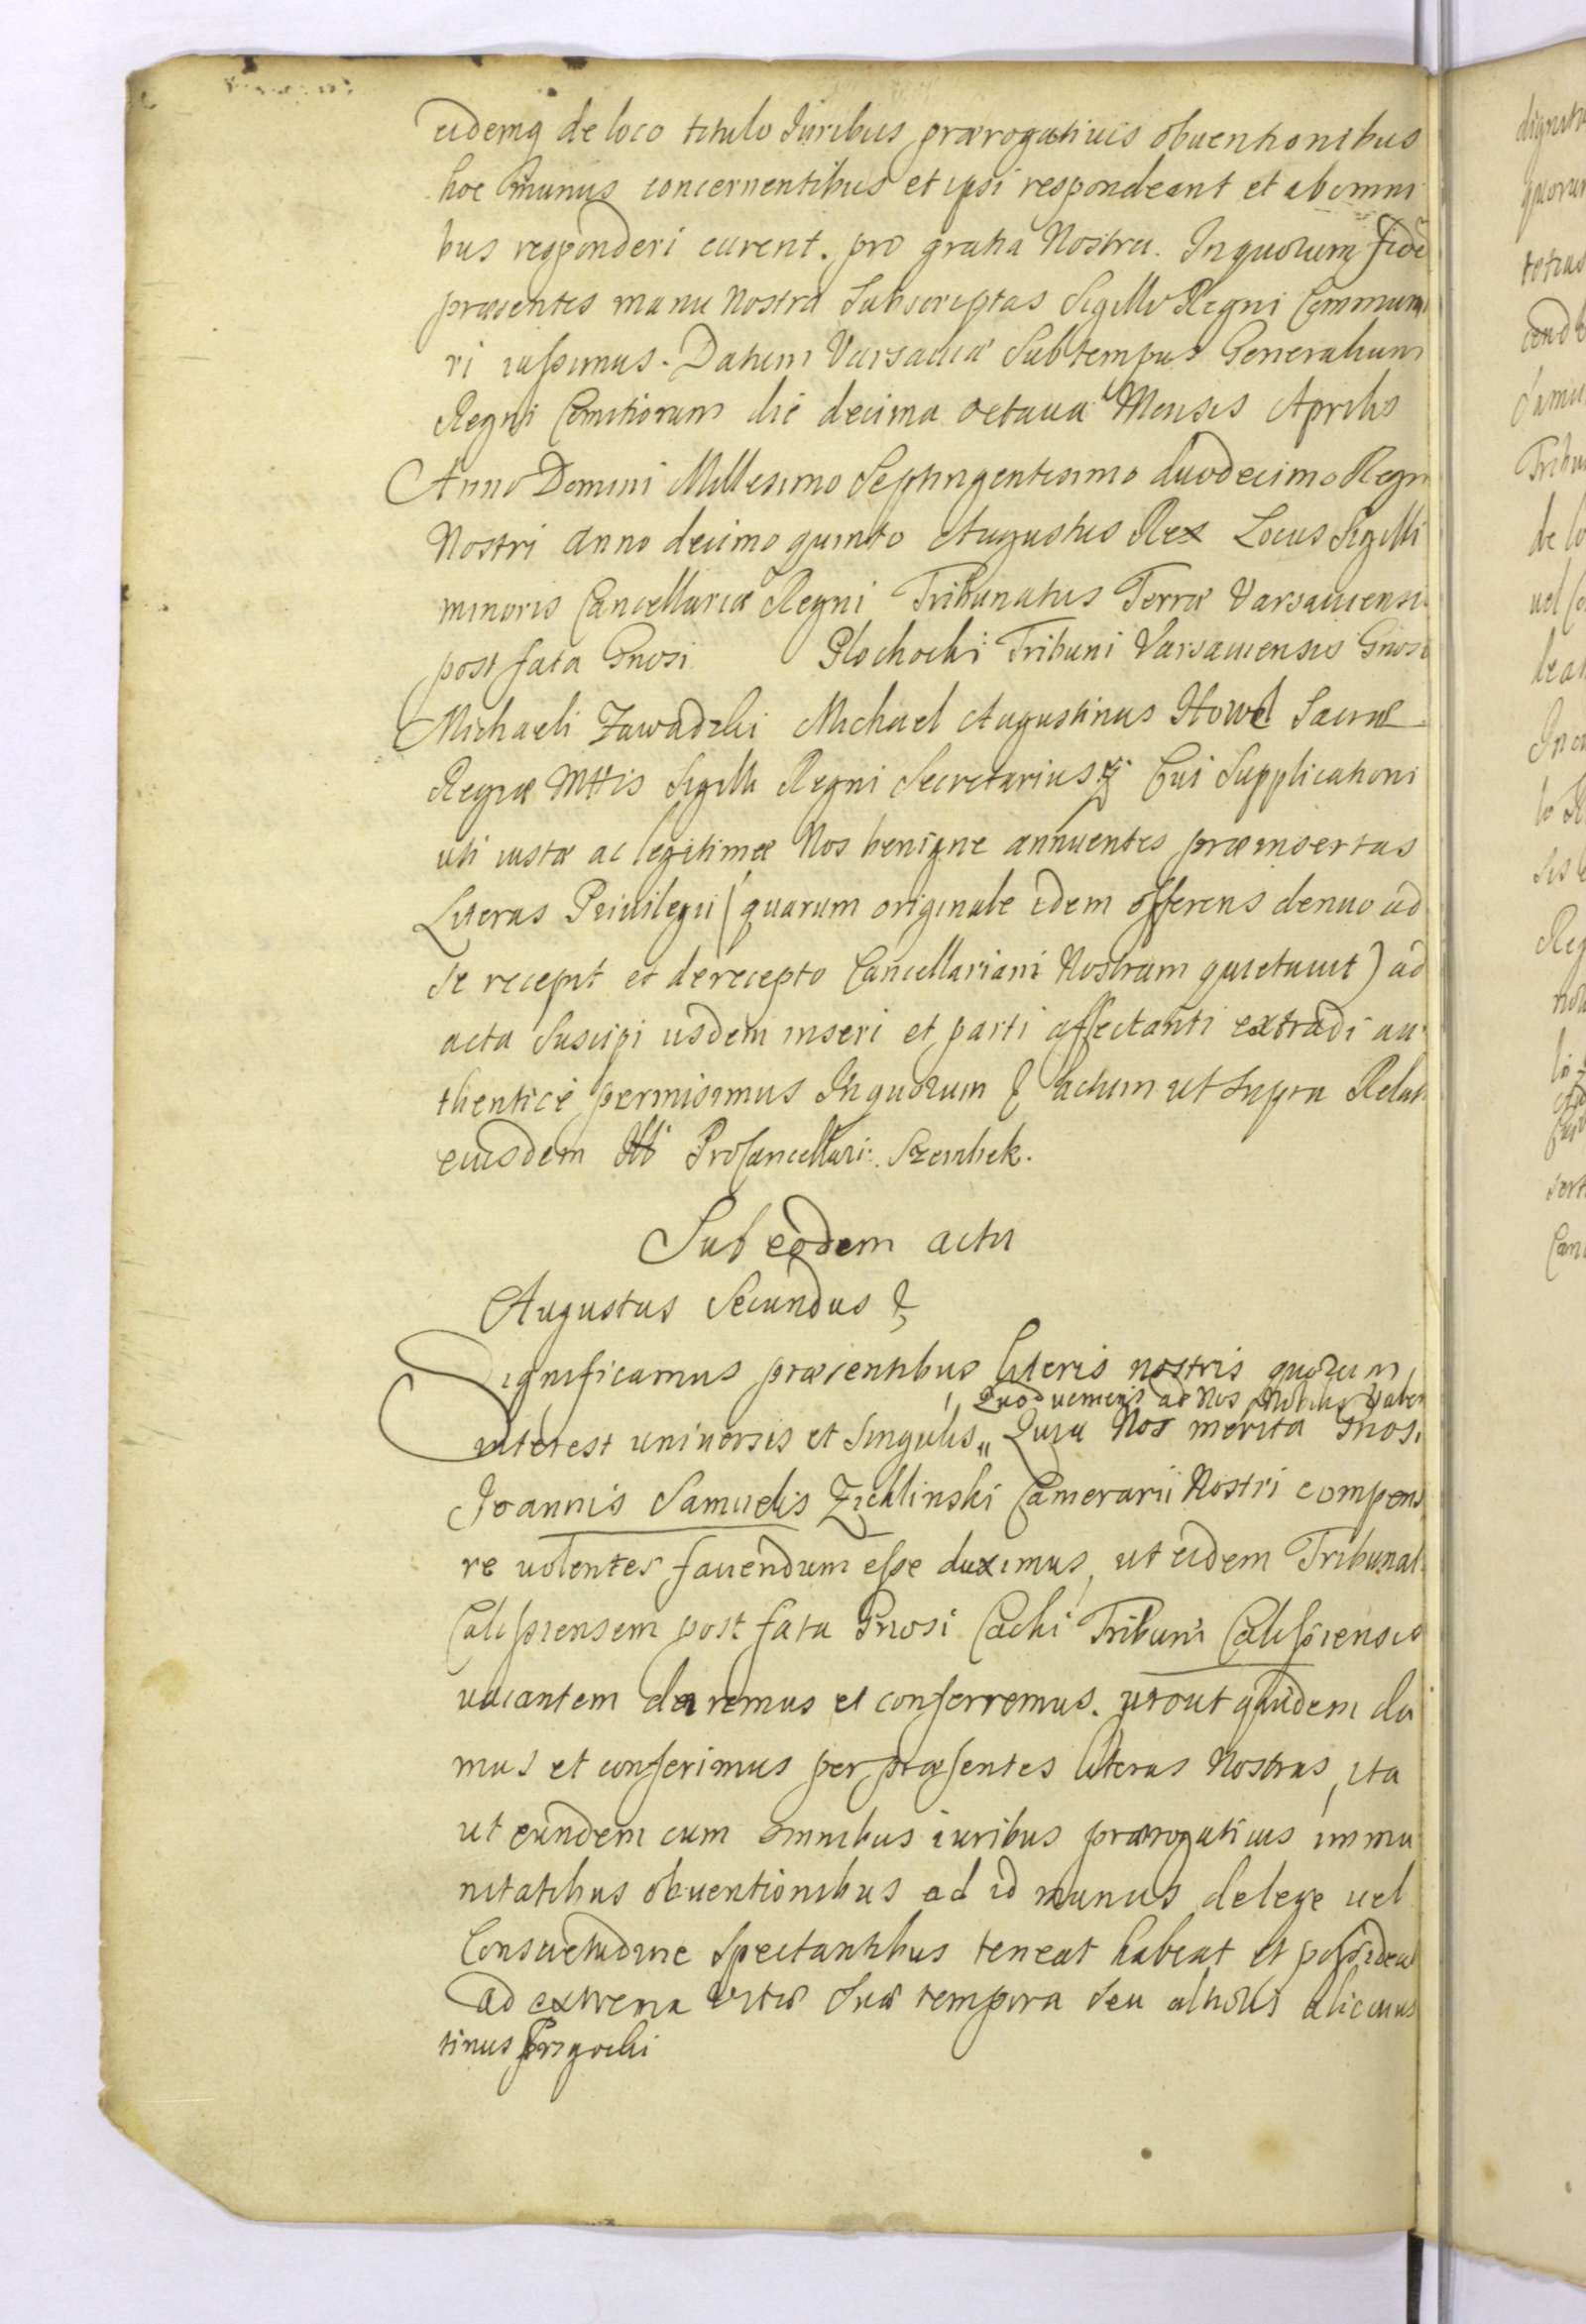 eidemq de loco titulo Juribus prærogativis obventionibus
hoc munus concernentibus et ipsi respondeant et ab omni
bus responderi curent. pro gratia Nostra. In quorum fidē
præsentes manu Nostra Subscriptas Sigillo Regni Communi
ri iussimus. Datum Varsaviæ Sub tempus Generalium
Regni Comitiorum die decima octava Mensis Aprilis
Anno Domini Millesimo Septingentesimo duodecimo Regni
Nostri anno decimo quinto Augustus Rex Locus Sigilli
minoris Cancellariæ Regni Tribunatus Terræ Varsaviensis
post fata Gnosi Plochocki Tribuni Varsaviensis Gnoso
Michaeli Zawadzki Michael Augustinus Howel Sacræ
Regiæ Mttis Sigilli Regni Secretarius Cui Supplicationi
uti iustæ ac legitimæ Nos benigne annuentes præinsertas
Literas Privilegii (quarum originale idem offerens denuo ad
se recepit et de recepto Cancellariam Nostram quietavit) ad
acta Suscipi iisdem inseri et parti affectanti extradi au
thentice permisimus In quorum & actum ut supra Relatio
eiusdem Illi ProCancellarii. Szembek.
Sub eodem actu
Augustus Secundus &
Significamus præsentibus literis nostris quorum
Quod veniens ad Nos Nobilis Valen
interest universis et Singulis „ Quia Nos merita Gnosi
Joannis Samuelis Zichlinski Camerarii Nostri compensa
re volentes favendum esse duximus, ut eidem Tribunat
Calissiensem post fata Gnosi Cacki Tribuni Calissiensis
vacantem daremus et conferremus. utout quidem da
mus et conferimus per præsentes literas Nostras, ita
ut eundem cum omnibus iuribus prærogativis immu
nitatibus obventionibus ad id munus de lege vel
Consuetudine Spectantibus teneat habeat et possideat
ad extrema vitæ Suæ tempora seu altioris alicuius